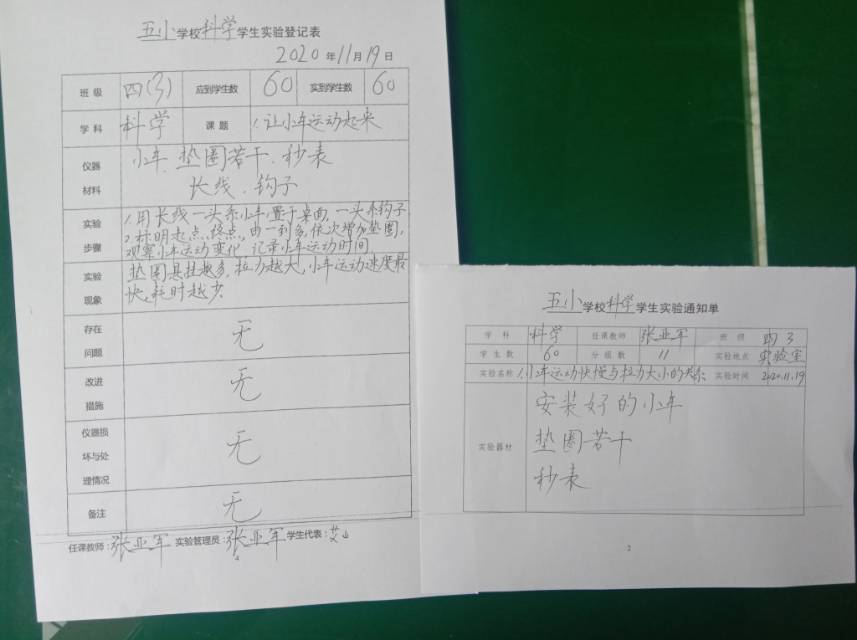 五小学校科学学生实验登记表
2020年11月19日
班级 四(3) 应到学生数 60 实到学生数 60
学科 科学 课题 1.让小车运动起来
仪器材料 小车.垫圈若干.秒表
长线.钩子
实验步骤 1.用长线一头系小车,置于桌面,一头系钩子
2.标明起点、终点,由一到多,依次增加垫圈,
观察小车运动变化,记录小车运动时间
实验现象 垫圈悬挂越多,拉力越大,小车运动速度最
快,耗时越少.
存在问题 无
改进措施 无
仪器损坏与处理情况 无
备注 无
任课教师:张亚军 实验管理员:张亚军 学生代表:
五小学校科学学生实验通知单
学科 科学 任课教师 张亚军 班级 四3
学生数 60 分组数 11 实验地点 实验室
实验名称 1.小车运动快慢与拉力大小的关系 实验时间 2020.11.19
实验器材 安装好的小车
垫圈若干
秒表
2